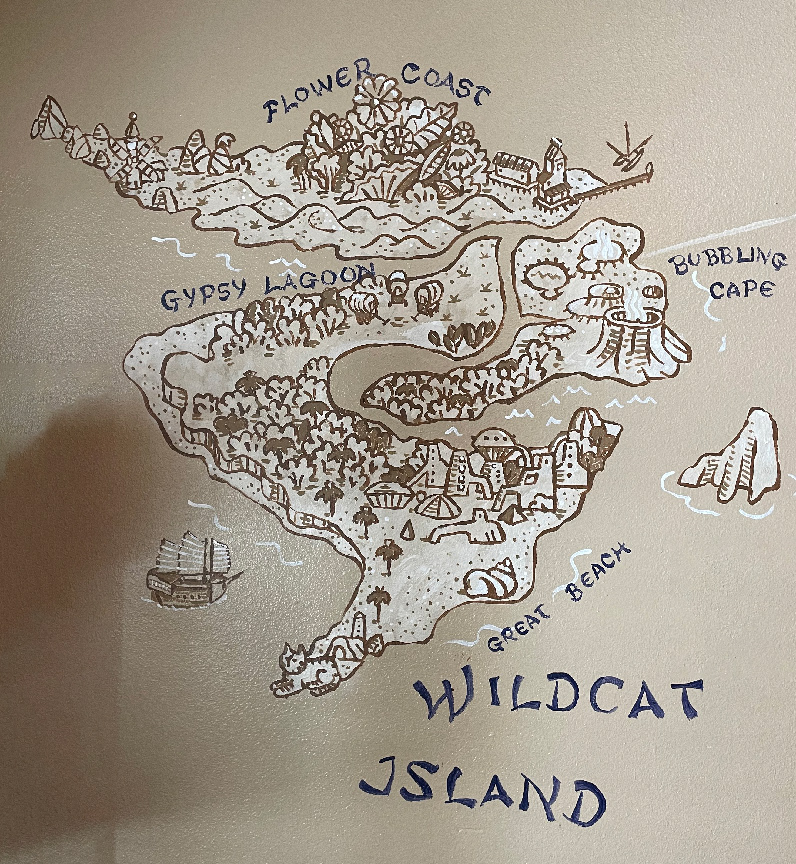 FLOWER COAST
GYPSY LAGOON
BUBBLING
CAPE
GREAT BEACH
WILDCAT
ISLAND